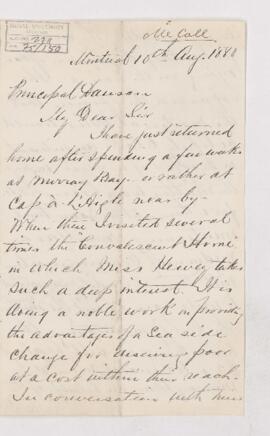 McCall
Montreal 10th Aug. 1888
Principal Dawson
My Dear Sir
I have just returned
home after spending a few weeks
at Murray Bay or rather at
Cap à l'Aigle near by.
When there I visited several
times the "Convalescent Home"
in which Miss Hervey takes
such a deep interest. It is
doing a noble work in providing
the advantages of a Sea side
change for deserving poor
at a cost within their reach.
In conversation with Miss